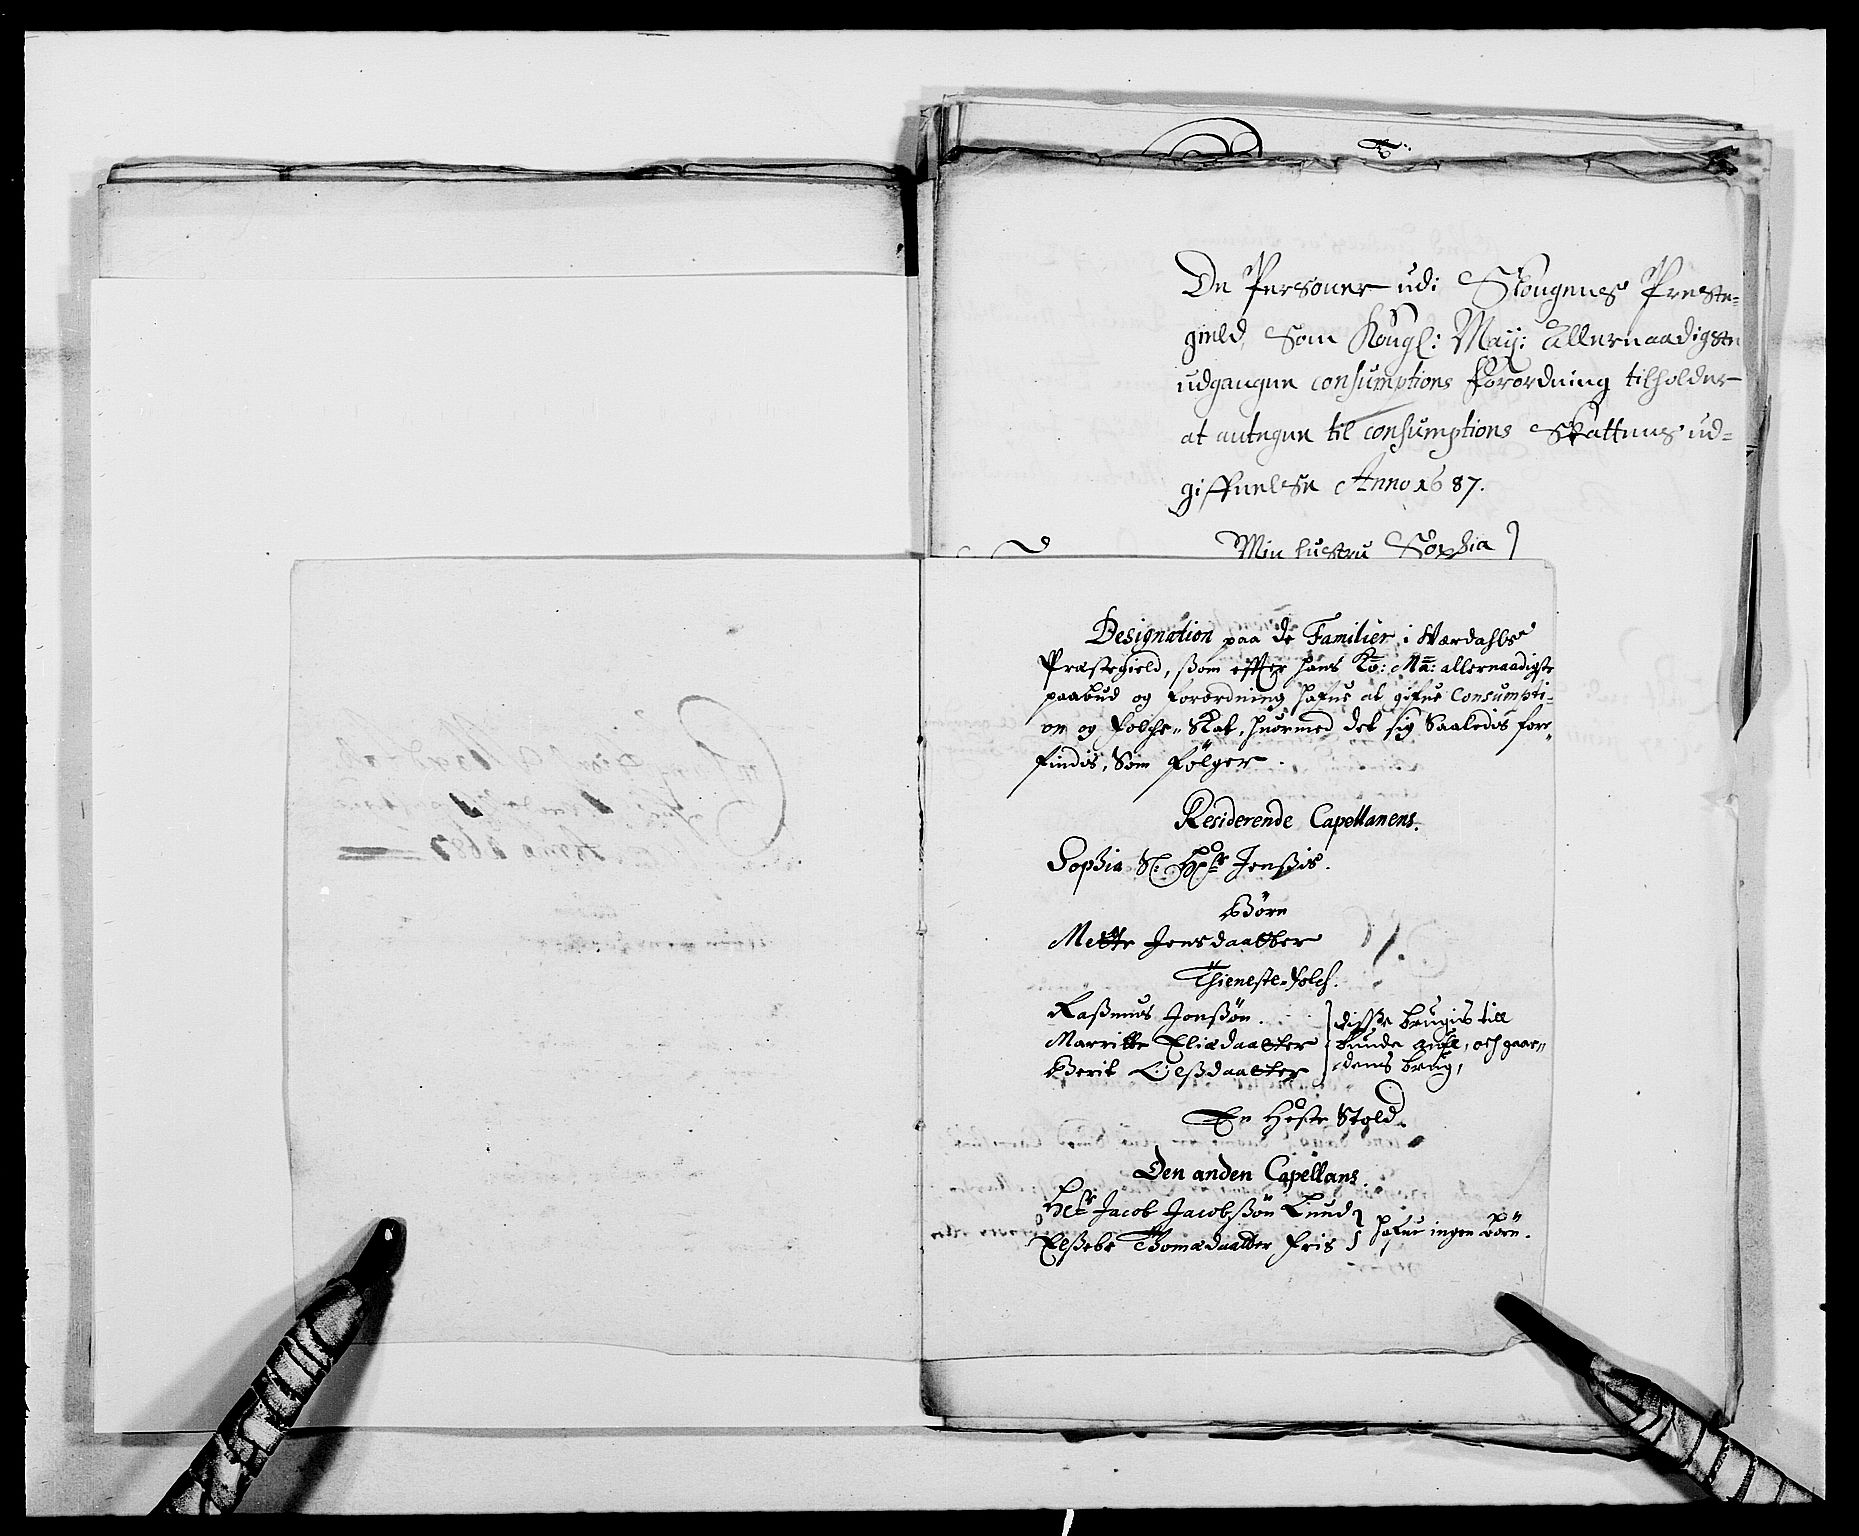 De Personer udi Skougens Preste-
gield, Som Kongl: May: allernaadigste
udgangne consumptions forordning tilholder
at antegne til consumptions Skattens ud-
giffuelse Anno 1687.
Min hustru Sophia
Designation paa de Familier i Wærdahls
Præstegield, som effter hans Ko: Ma: allernaadigste
paabud og forordning hafue at gifue Consumpti-
on og folche-Skat, huormed det sig Saaledis for-
findis, Som følger.
Residerende Capellanens.
Sophia Sl: Hr Jenssis.
Børn
Mette Jensdaatter
Thieneste-folch.
Rasmus Jonssøn.
Marritte Eliædaatter
Berit Olssdaatter
disse brugis till
bunde aufl, och gaar-
dens brug,
En Heste Stald.
Den anden Capellans.
Hr Jacob Jacobssøn Lund
Elssebe Thomædaatter Friis
hafue ingen børn.